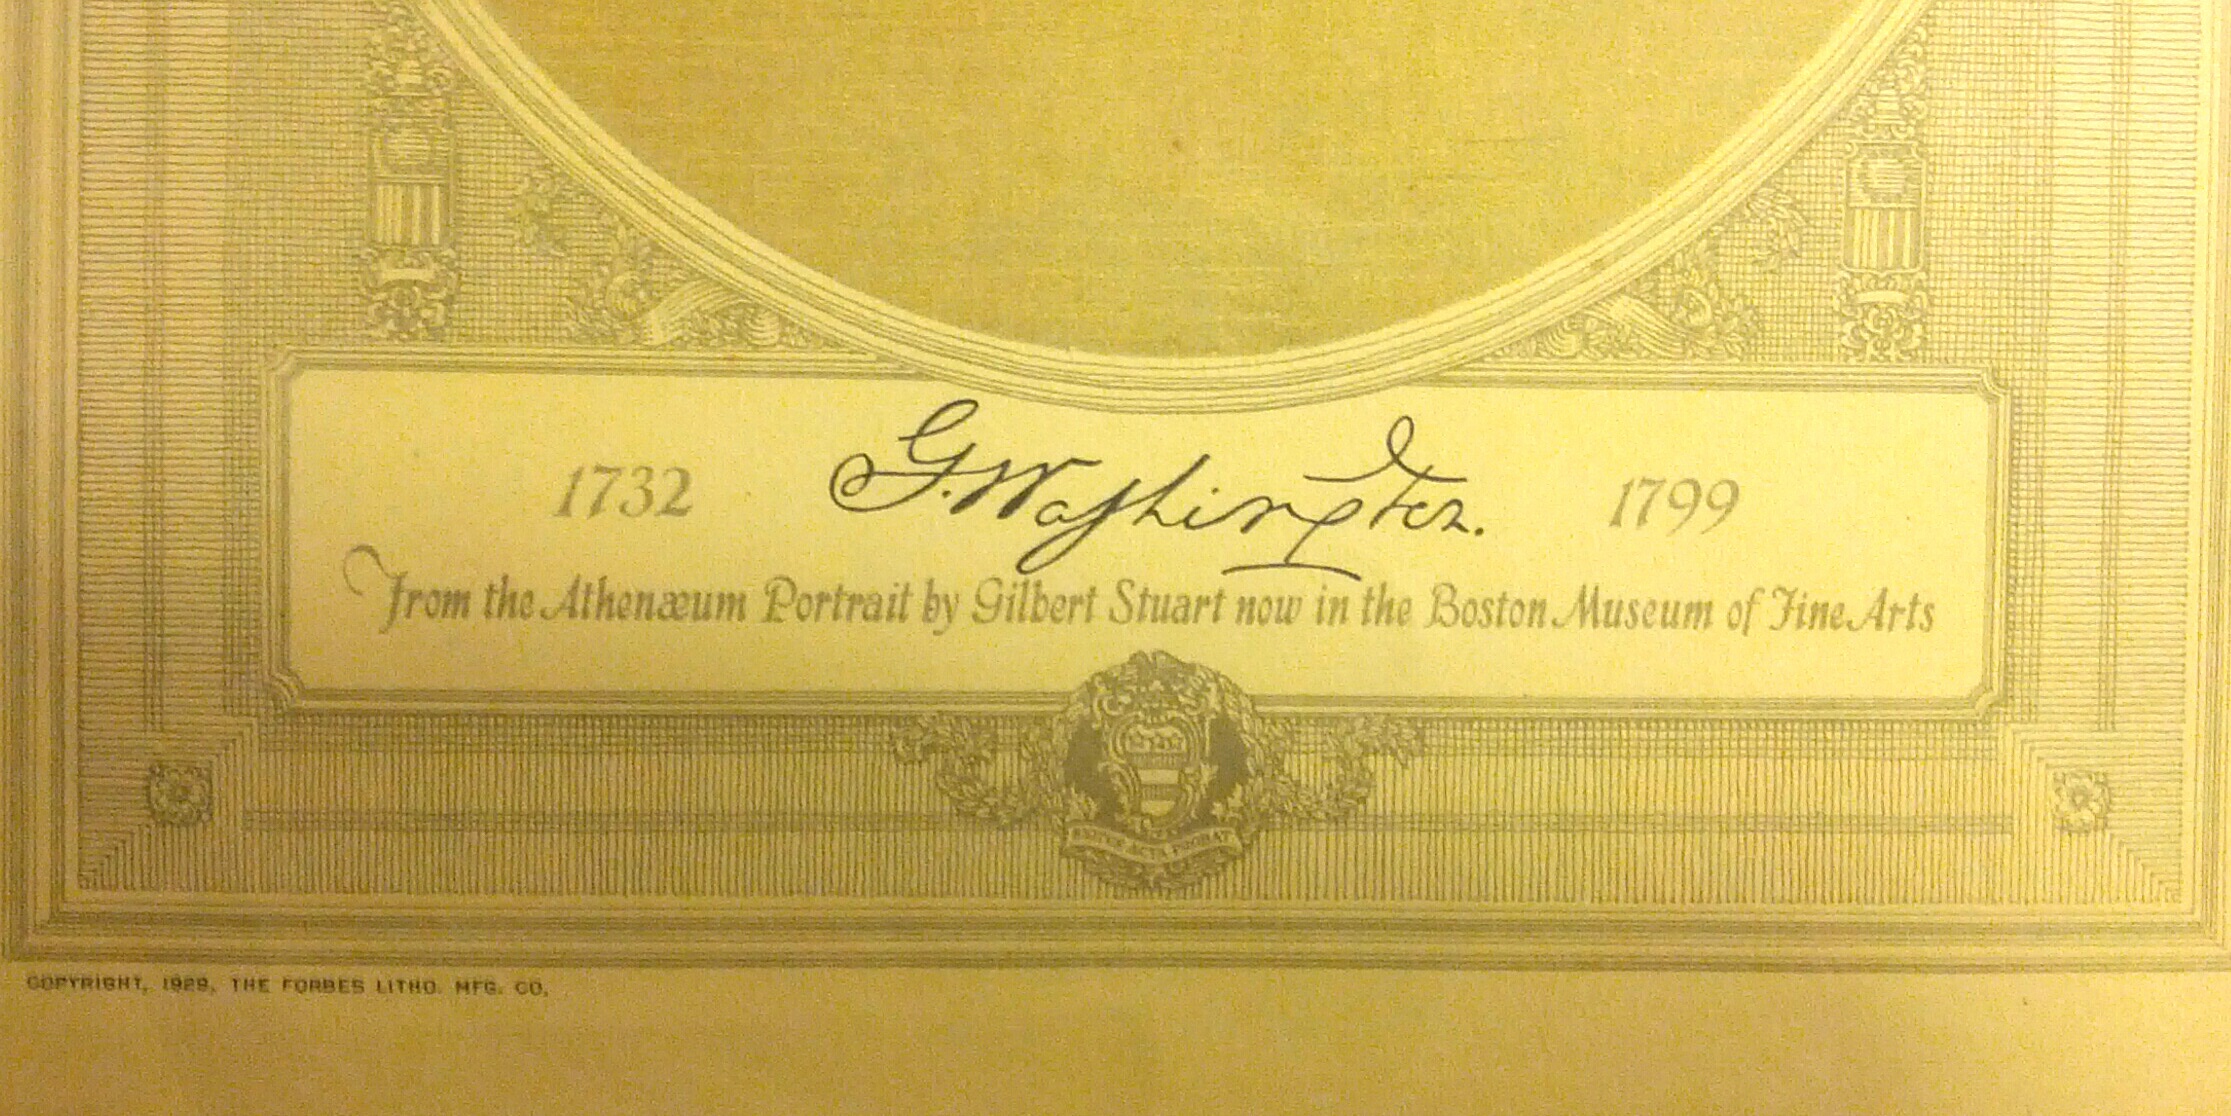 1732 G. Washington. 1799
From the Athenæum Portrait by Gilbert Stuart now in the Boston Museum of Fine Arts
EXITUS ACTA PROBAT
COPYRIGHT, 1929, THE FORBES LITHO. MFG. CO.